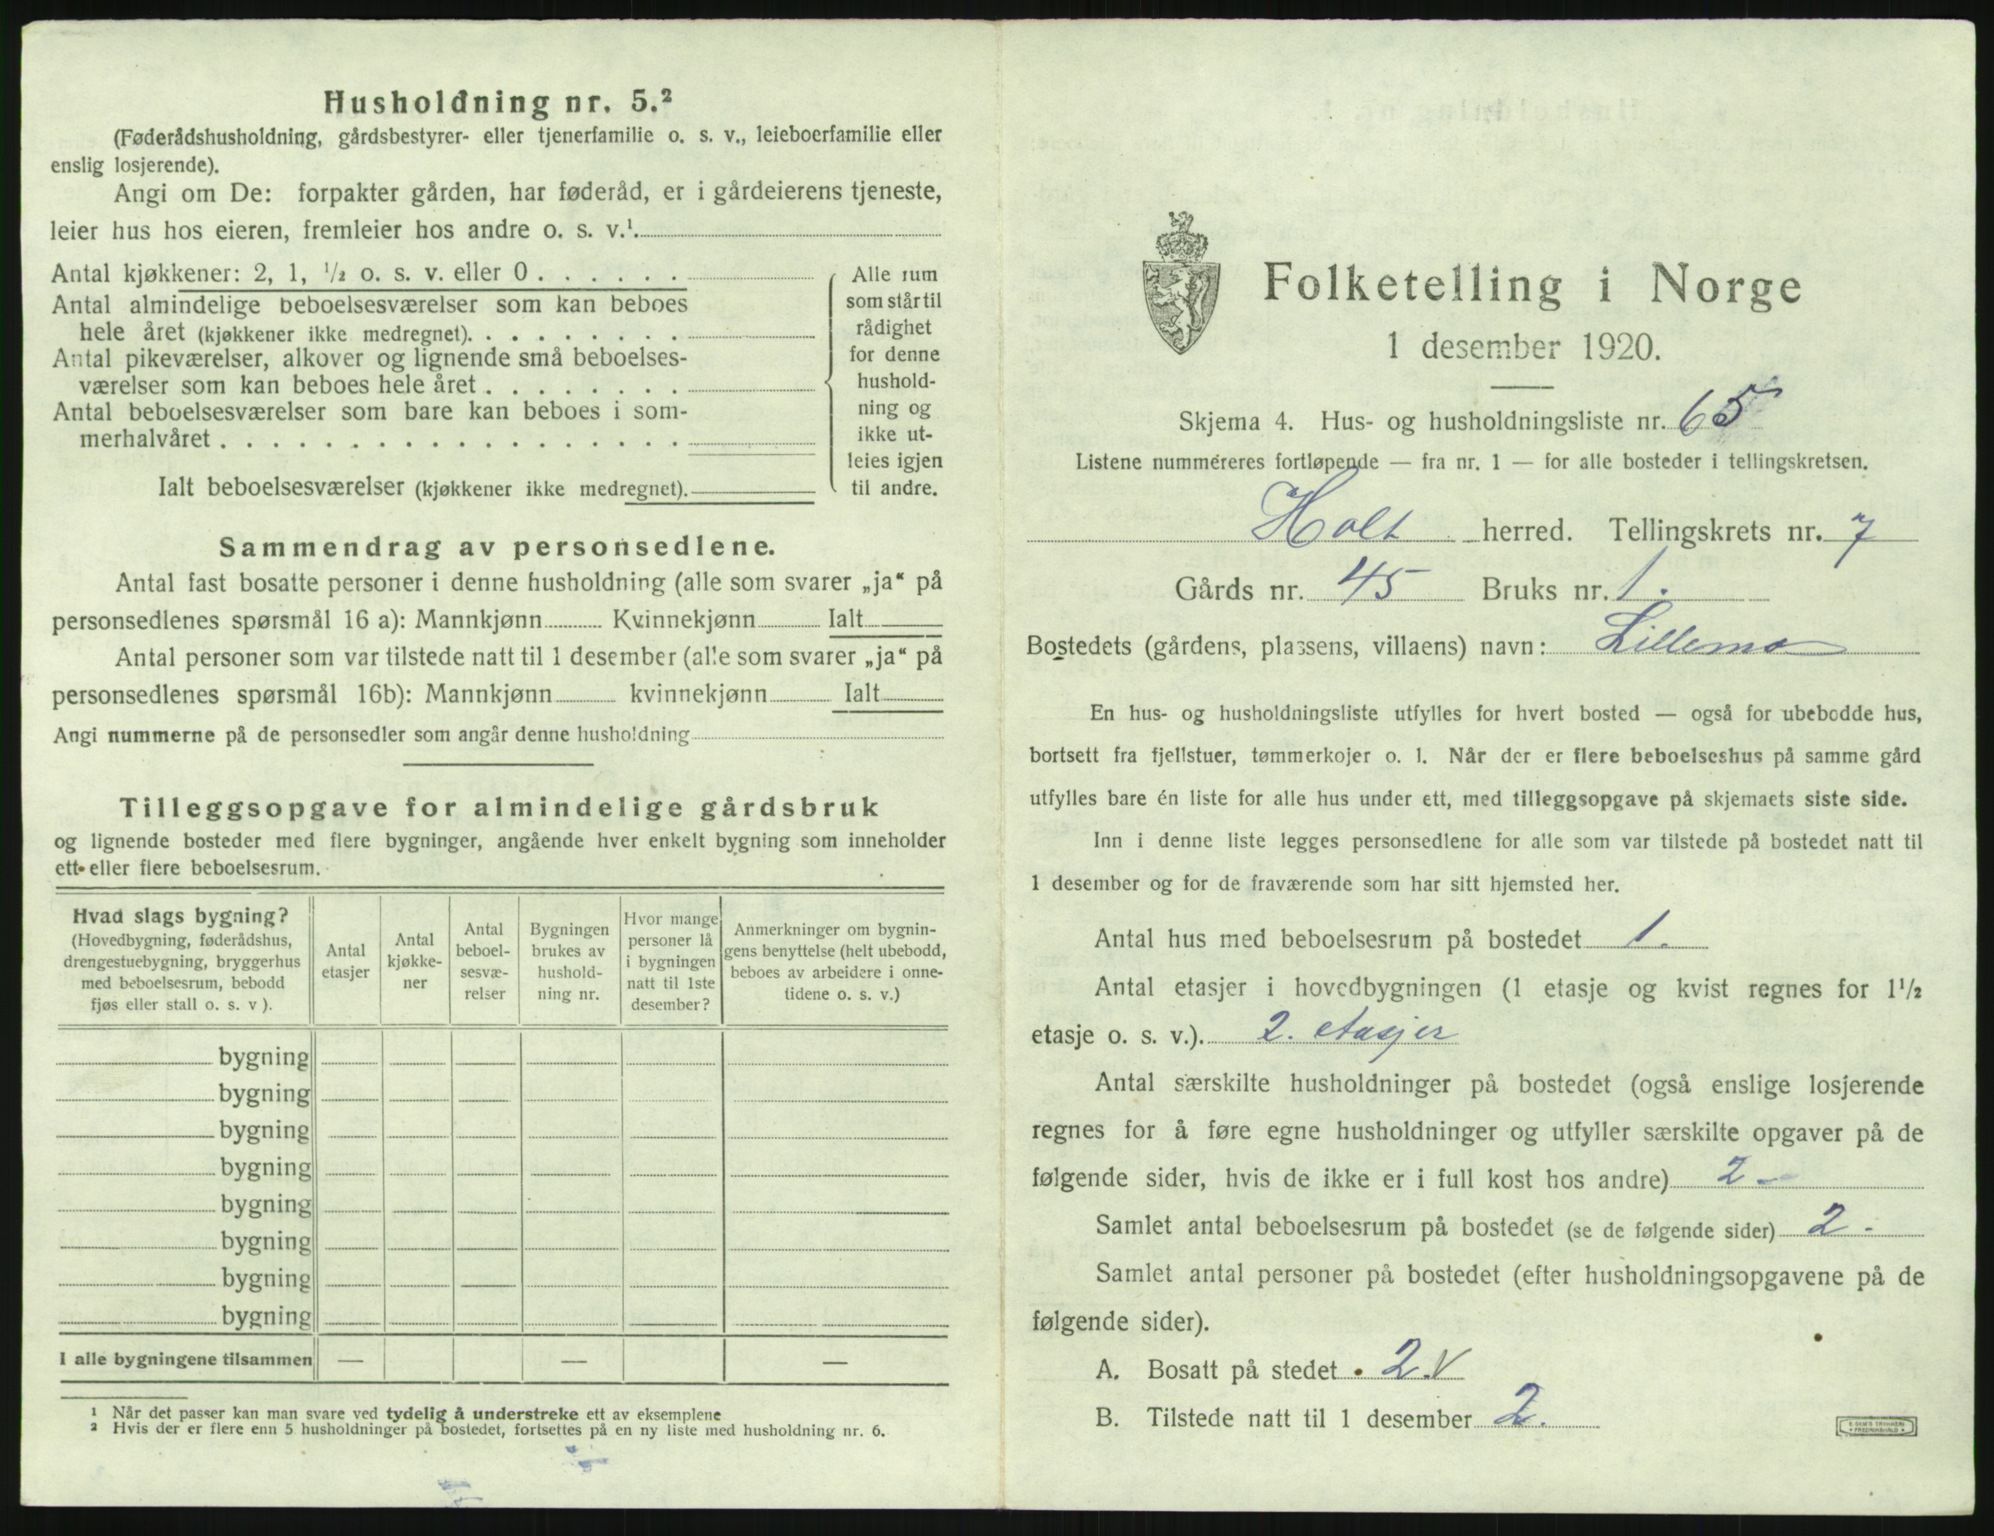 Husholdning nr. 5.²
(Føderådshusholdning, gårdsbestyrer- eller tjenerfamilie o. s. v., leieboerfamilie eller
enslig losjerende).
Angi om De: forpakter gården, har føderåd, er i gårdeierens tjeneste,
leier hus hos eieren, fremleier hos andre o. s. v.¹
Antal kjøkkener: 2, 1, ½ o. s. v. eller 0 . . . . . .
Antal almindelige beboelsesværelser som kan beboes
hele året (kjøkkener ikke medregnet). . . . . . . . .
Antal pikeværelser, alkover og lignende små beboelses-
værelser som kan beboes hele året . . . . . . . .
Antal beboelsesværelser som bare kan beboes i som-
merhalvåret . . . . . . . . . . . . . . . . . .
Ialt beboelsesværelser (kjøkkener ikke medregnet).
Alle rum
som står til
rådighet
for denne
hushold-
ning og
ikke ut-
leies igjen
til andre.
Sammendrag av personsedlene.
Antal fast bosatte personer i denne husholdning (alle som svarer „ja“ på
personsedlenes spørsmål 16 a): Mannkjønn Kvinnekjønn Ialt
Antal personer som var tilstede natt til 1 desember (alle som svarer „ja“ på
personsedlenes spørsmål 16b): Mannkjønn kvinnekjønn Ialt
Angi nummerne på de personsedler som angår denne husholdning
Tilleggsopgave for almindelige gårdsbruk
og lignende bosteder med flere bygninger, angående hver enkelt bygning som inneholder
ett eller flere beboelsesrum.
Hvad slags bygning?
(Hovedbygning, føderådshus,
drengestuebygning, bryggerhus
med beboelsesrum, bebodd
fjøs eller stall o. s. v ).
Antal
etasjer
Antal
kjøkke-
ner
Antal
beboel-
sesvæ-
relser
Bygningen
brukes av
hushold-
ning nr.
Hvor mange
personer lå
i bygningen
natt til 1ste
desember?
Anmerkninger om bygnin-
gens benyttelse (helt ubebodd,
beboes av arbeidere i onne-
tidene o. s. v.)
bygning
bygning
bygning
bygning
bygning
bygning
bygning
bygning
I alle bygningene tilsammen — — —
¹ Når det passer kan man svare ved tydelig å understreke ett av eksemplene
² Hvis der er flere enn 5 husholdninger på bostedet, fortsettes på en ny liste med husholdning nr. 6.
Folketelling i Norge
1 desember 1920.
Skjema 4. Hus- og husholdningsliste nr. 65
Listene nummereres fortløpende — fra nr. 1 — for alle bosteder i tellingskretsen.
Holt herred. Tellingskrets nr. 7
Gårds nr. 45 Bruks nr. 1.
Bostedets (gårdens, plassens, villaens) navn: Lillemo
En hus- og husholdningsliste utfylles for hvert bosted — også for ubebodde hus,
bortsett fra fjellstuer, tømmerkojer o. l. Når der er flere beboelseshus på samme gård
utfylles bare én liste for alle hus under ett, med tilleggsopgave på skjemaets siste side.
Inn i denne liste legges personsedlene for alle som var tilstede på bostedet natt til
1 desember og for de fraværende som har sitt hjemsted her.
Antal hus med beboelsesrum på bostedet 1.
Antal etasjer i hovedbygningen (1 etasje og kvist regnes for 1½
etasje o. s. v.). 2. etasjer
Antal særskilte husholdninger på bostedet (også enslige losjerende
regnes for å føre egne husholdninger og utfyller særskilte opgaver på de
følgende sider, hvis de ikke er i full kost hos andre) 2 -
Samlet antal beboelsesrum på bostedet (se de følgende sider) 2 -
Samlet antal personer på bostedet (efter husholdningsopgavene på de
følgende sider).
A. Bosatt på stedet 2. V
B. Tilstede natt til 1 desember 2.